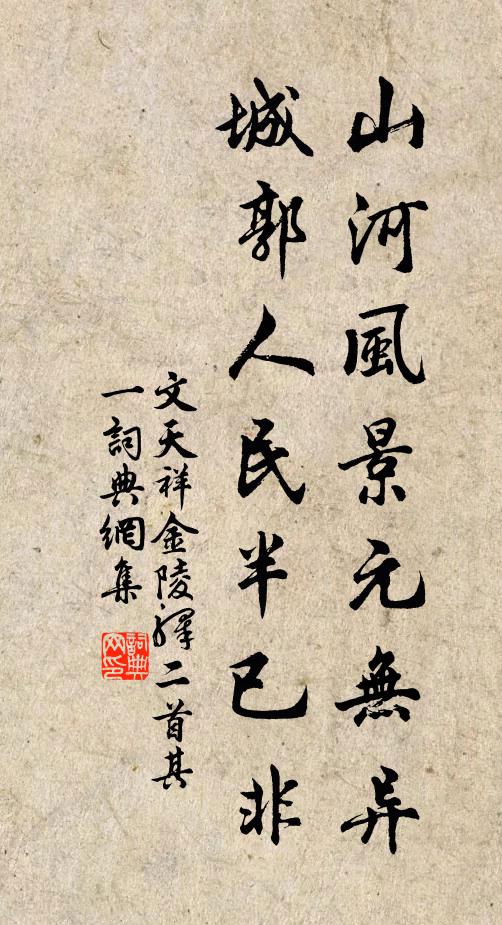 山河風景元無异
城郭人民半已非
文天祥金陵驛二首其
一詞典網集
詞典网印